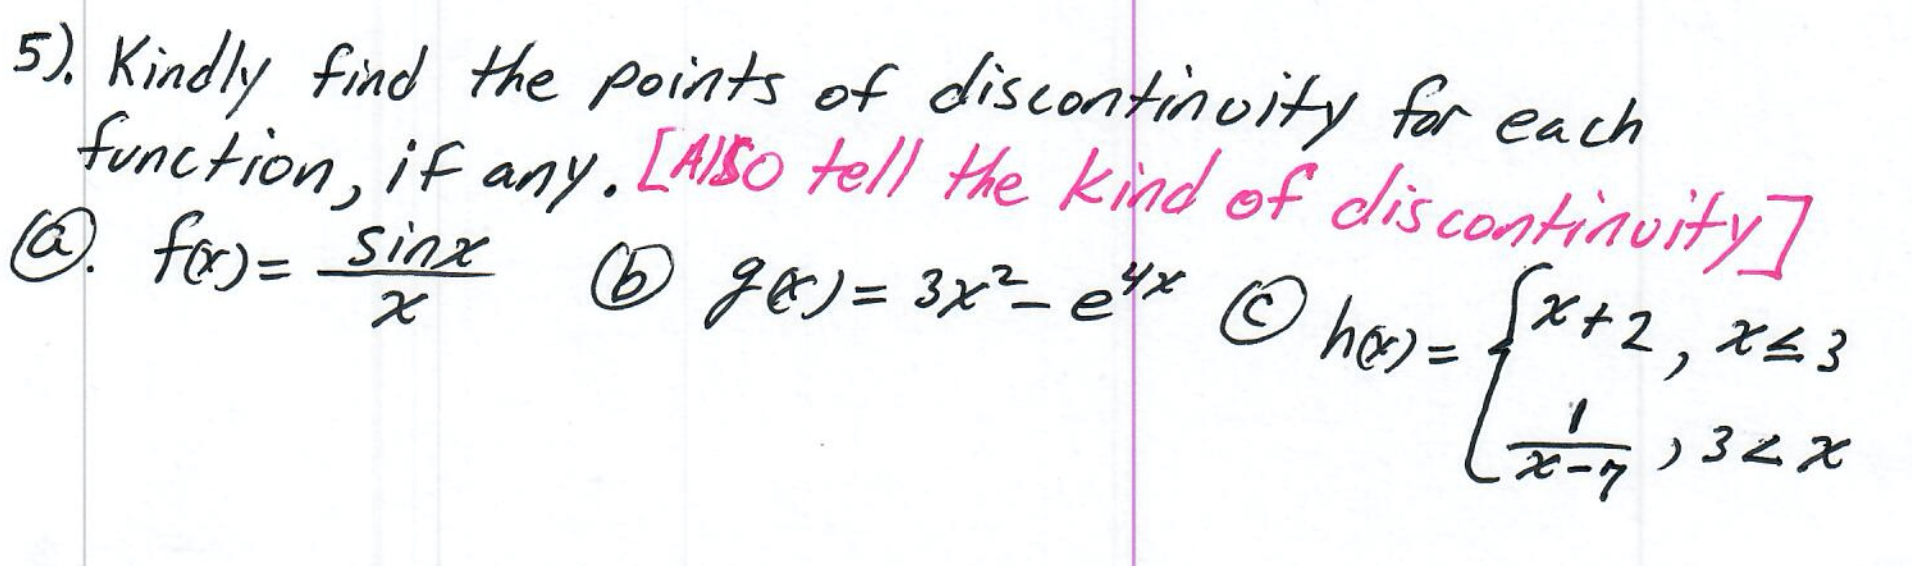 5). Kindly find the points of discontinuity for each
function, if any. [Also tell the kind of discontinuity]
ⓐ. f(x) = sinx / x ⓑ g(x) = 3x² - e^4x ⓒ h(x) = { x+2, x ≤ 3
1 / x-7, 3 < x